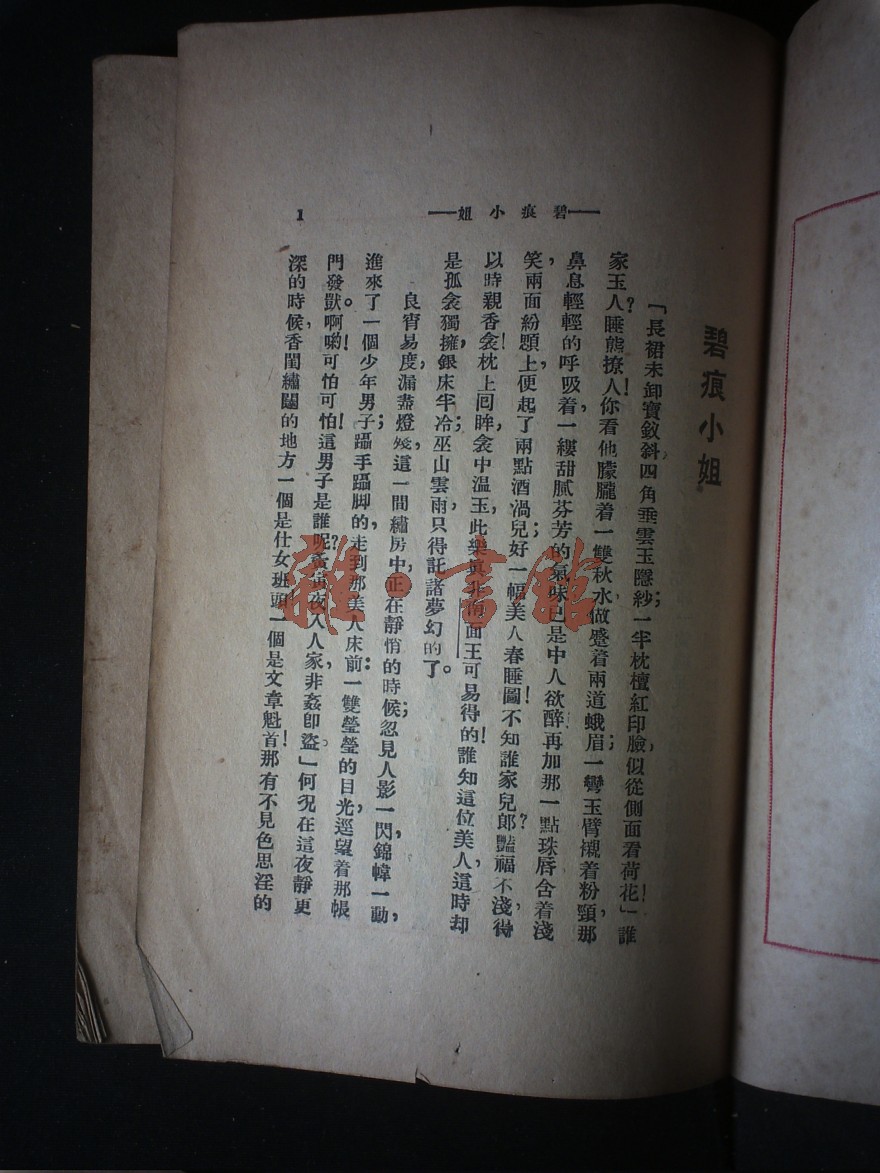 碧痕小姐
「長裙未卸寶釵斜四角垂雲玉隱紗；一半枕檀紅印臉，似從側面看荷花！」誰
家玉人睡態撩人！你看他朦朧着一雙秋水，做蹙着兩道蛾眉；一彎玉臂襯着粉頸，那
鼻息輕輕的呼吸着，一縷甜膩芬芳的氣味，已是中人欲醉，再加那一點珠唇，含着淺
笑，兩面紛顋上便起了兩點酒渦兒；好一幅美人春睡圖！不知誰家兒郎豔福不淺？得
以時親香衾！枕上囘眸，衾中溫玉，此樂眞非南面王可易得的！誰知這位美人，這時却
是孤衾獨擁，銀床半冷，巫山雲雨，只得託諸夢幻的了。
良宵易度，漏盡燈殘；這一間繡房中，正在靜悄的時候；忽見人影一閃，錦幃一動，
進來了一個少年男子；躡手躡脚的，走到那美人床前：一雙瑩瑩的目光，逕望着那帳
門發獃。啊喲！可怕可怕！這男子是誰呢？黃夤夜入人家，非姦卽盜。」何况在這夜靜更
深的時候，香閨繡闥的地方，一個是仕女班頭，一個是文章魁首！那有不見色思淫的
—碧痕小姐—
1
雜·書館